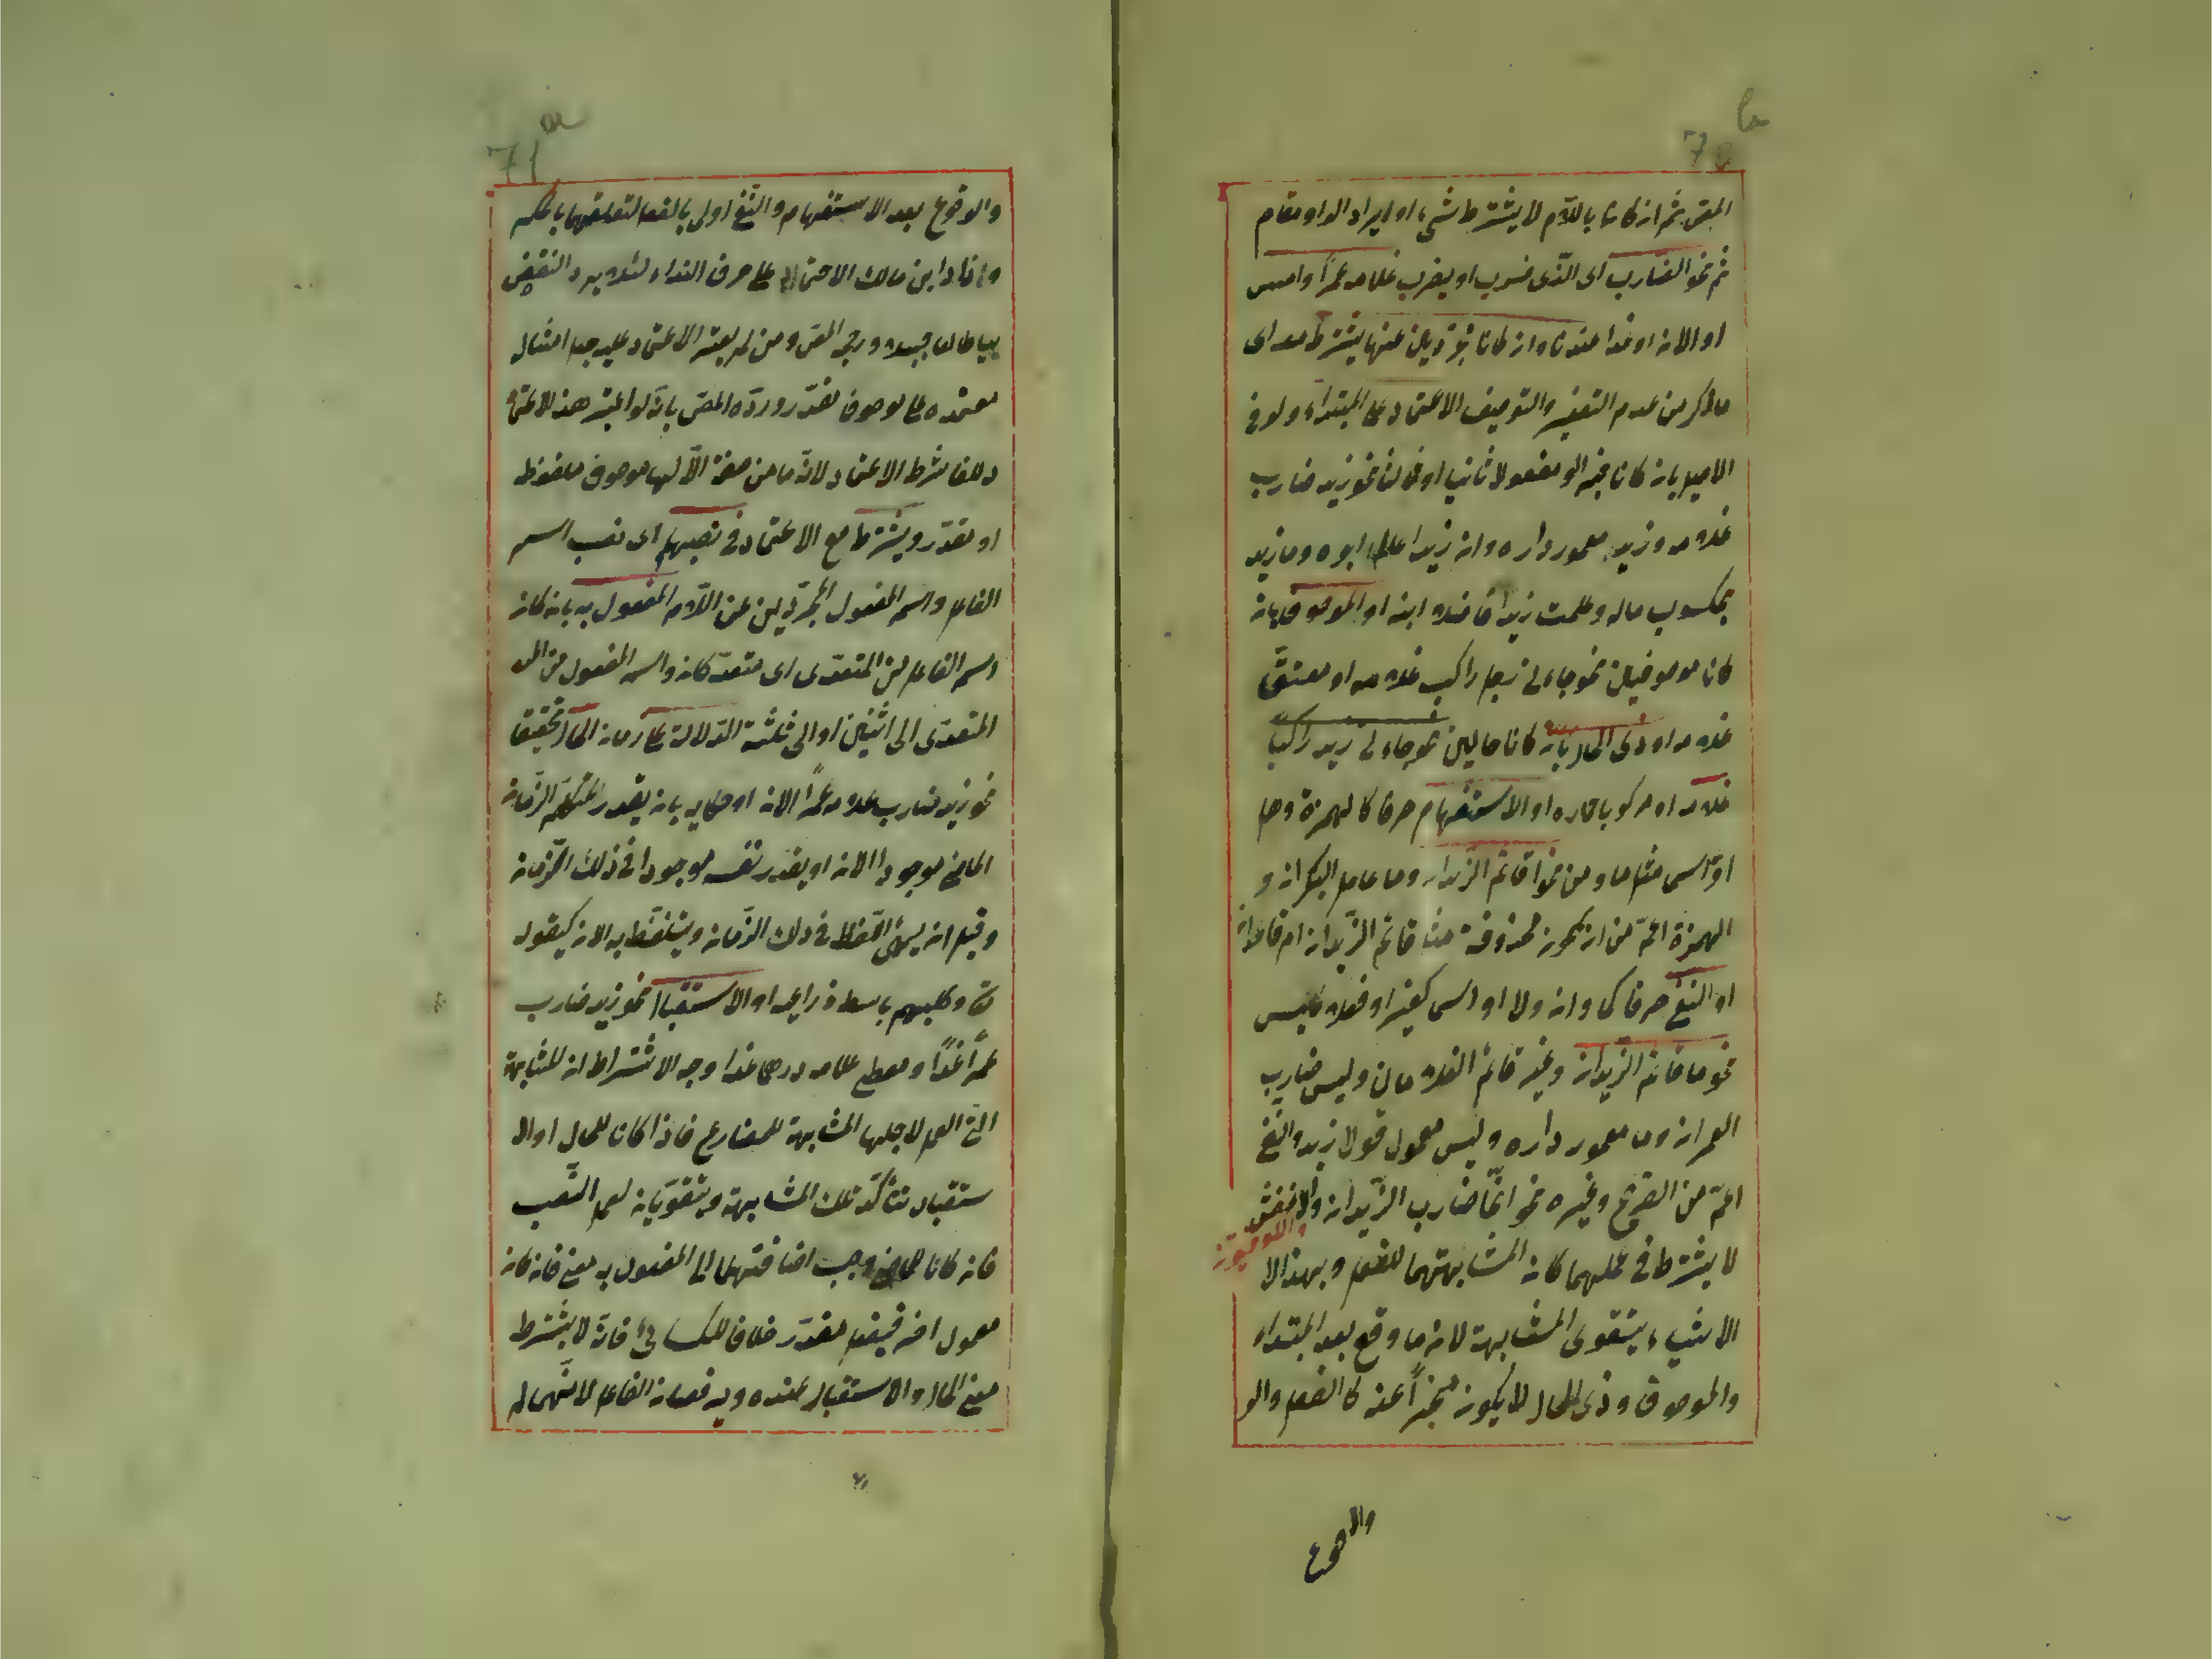 المص ثم ان كانا باللام لا يشترط شيء او ايراد الواو مقام
ثم نحو الضارب اى الذى ضرب او يضرب غلامه عمرًا وامس
او الان او غدا عندنا وان كانا مجردين عنها يشترط معه اى
ما ذكر من عدم التصغير والتوصيف الاعتماد على المبتداء ولو فى
الاصل بان كانا خبرا او مفعولا ثانيا او ثالثا نحو زيد ضارب
غلامه وزيد معمور داره وان زيدا عالم ابوه وما زيد
بمكسوب ماله وعلمت زيدا فاضلا ابنه او الموصوف بان
كانا موصوفين نحو جاءنى رجل راكب غلامه او معتق
غلامه او ذى الحال بان كانا حالين نحو جاءنى زيد راكبا
غلامه او مركوبا حماره او الاستفهام حرفا كالهمزة وهل
او اسما مثل ما ومن نحو اقائم الزيدان وما عامل البكران و
الهمزة اعم من ان يكون محذوفة مثل قائم الزيدان ام قاعدان
او النفى حرفا كما وان ولا او اسما كغير او فعلا كليس
نحو ما قائم الزيدان وغير قائم الغلامان وليس ضارب
العمران وما معمور داره وليس معمول قولا زيد والنفى
اعم من الصريح وغيره نحو انما ضارب الزيدان والاخفش
والكوفيون
لا يشترط فى عملهما كان المشابهتهما للفعل وبهذا الا
الاشياء يتقوى المشابهة لان ما وقع بعد المبتداء
والموصوف وذى الحال لا يكون مخبرًا عنه كالفعل والو
والوقوع
والوقوع بعد الاستفهام والنفى اولى بالفعل لتعلقهما بالحكم
وافاد ابن مالك الاعتماد على حرف النداء لئلا يرد النقض
بيا طالعا جبلا ورجحه المص ومن لم يعتبر الاعتماد عليه جعل امثال
معتمده على موصوف مقدر ورده المص بانه لو اعتبر هذا الاعتماد
للغا شرط الاعتماد لانه ما من صفة الا لها موصوف ملفوظ
او مقدر ويشترط مع الاعتماد فى نصبهما اى نصب اسم
الفاعل واسم المفعول المجردين عن اللام المفعول به بان كان
اسم الفاعل من المتعدى اى متعد كان واسم المفعول من الم
المتعدى الى اثنين او الى ثلثة الدلالة على زمان الحال تحقيقا
نحو زيد ضارب غلامه عمرًا الان او حكاية بان يقدر المتكلم الزمان
الماضى موجودا الان او يقدر نفسه موجودا فى ذلك الزمان
وقيل ان يسمى اللفظ فى ذلك الزمان ويتلفظ به الان كقوله
تعالى وكلبهم باسط ذراعيه او الاستقبال نحو زيد ضارب
عمرًا غدًا ومعطى غلامه درهما غدا وجه الاشتراط ان للمشابهة
التى العمل لاجلها المشابهة للمضارع فاذا كانا للحال او الا
ستقبال تتأكد تلك المشابهة ويتقويان لعمل النصب
فان كانا للماضى وجب اضافتهما الى المفعول به معنى فان كان
معمول اخر فبفعل مقدر خلافا للكسائى فانه لا يشترط
معنى الحال والاستقبال عنده ويرفعان الفاعل لانهما لم